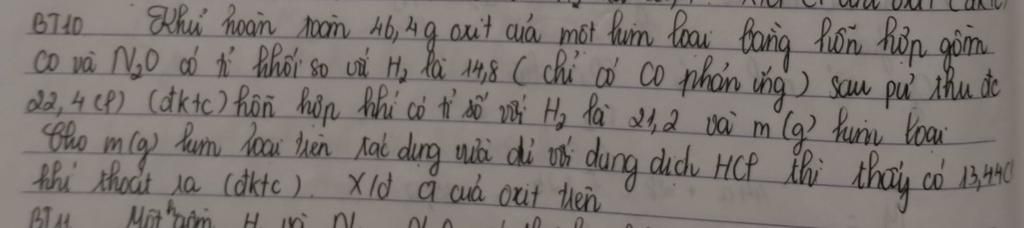 BT10 Khử hoàn toàn 46,4 g oxit của một kim loại bằng hỗn hợp gồm
CO và N2O có tỉ khối so với H2 là 14,8 ( chỉ có CO phản ứng ) sau pứ thu đc
22,4 (l) (đktc) hỗn hợp khí có tỉ số với H2 là 21,2 và m (g) kim loại
Cho m(g) kim loại trên tác dụng vừa đủ với dung dịch HCl thì thấy có 13,44(l
khí thoát ra (đktc). X/đ of của oxit trên
BT11 Một H